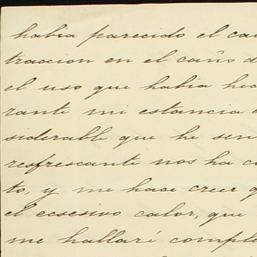 habia parecido el ca
traccion en el caño d
el uso que habia hec
rante mi estancia
siderable que he sen
refrescante nos ha c
to, y me hace creer q
el ecsesivo calor, que
me hallaré comple